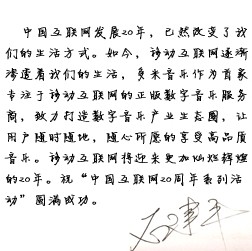 中国互联网发展20年，已然改变了我
们的生活方式。如今，移动互联网逐渐
渗透着我们的生活，多米音乐作为首家
专注于移动互联网的正版数字音乐服务
商，致力打造数字音乐产业生态圈，让
用户随时随地，随心所愿的享受高品质
音乐。移动互联网将迎来更加灿烂辉煌
的20年。祝“中国互联网20周年系列活
动”圆满成功。